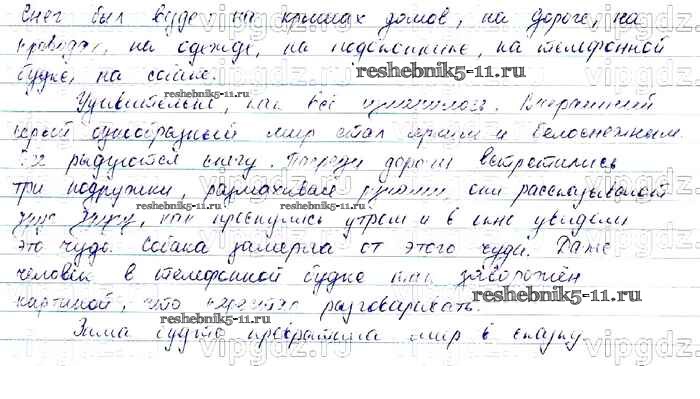 Снег был везде: на крышах домов, на дороге, на
проводах, на одежде, на подоконнике, на телефонной
будке, на собаке.
reshebnik5-11.ru
Удивительно, как всё изменилось. Вчерашний
серый однообразный мир стал ярким и белоснежным.
Все радуются снегу. Посреди дороги встретились
три подружки, размахивая руками, они рассказывают
друг другу, как проснулись утром и в окне увидели
это чудо. Собака замерла от этого чуда. Даже
человек в телефонной будке так заворожён
картиной, что перестал разговаривать.
reshebnik5-11.ru
Зима будто превратила мир в сказку